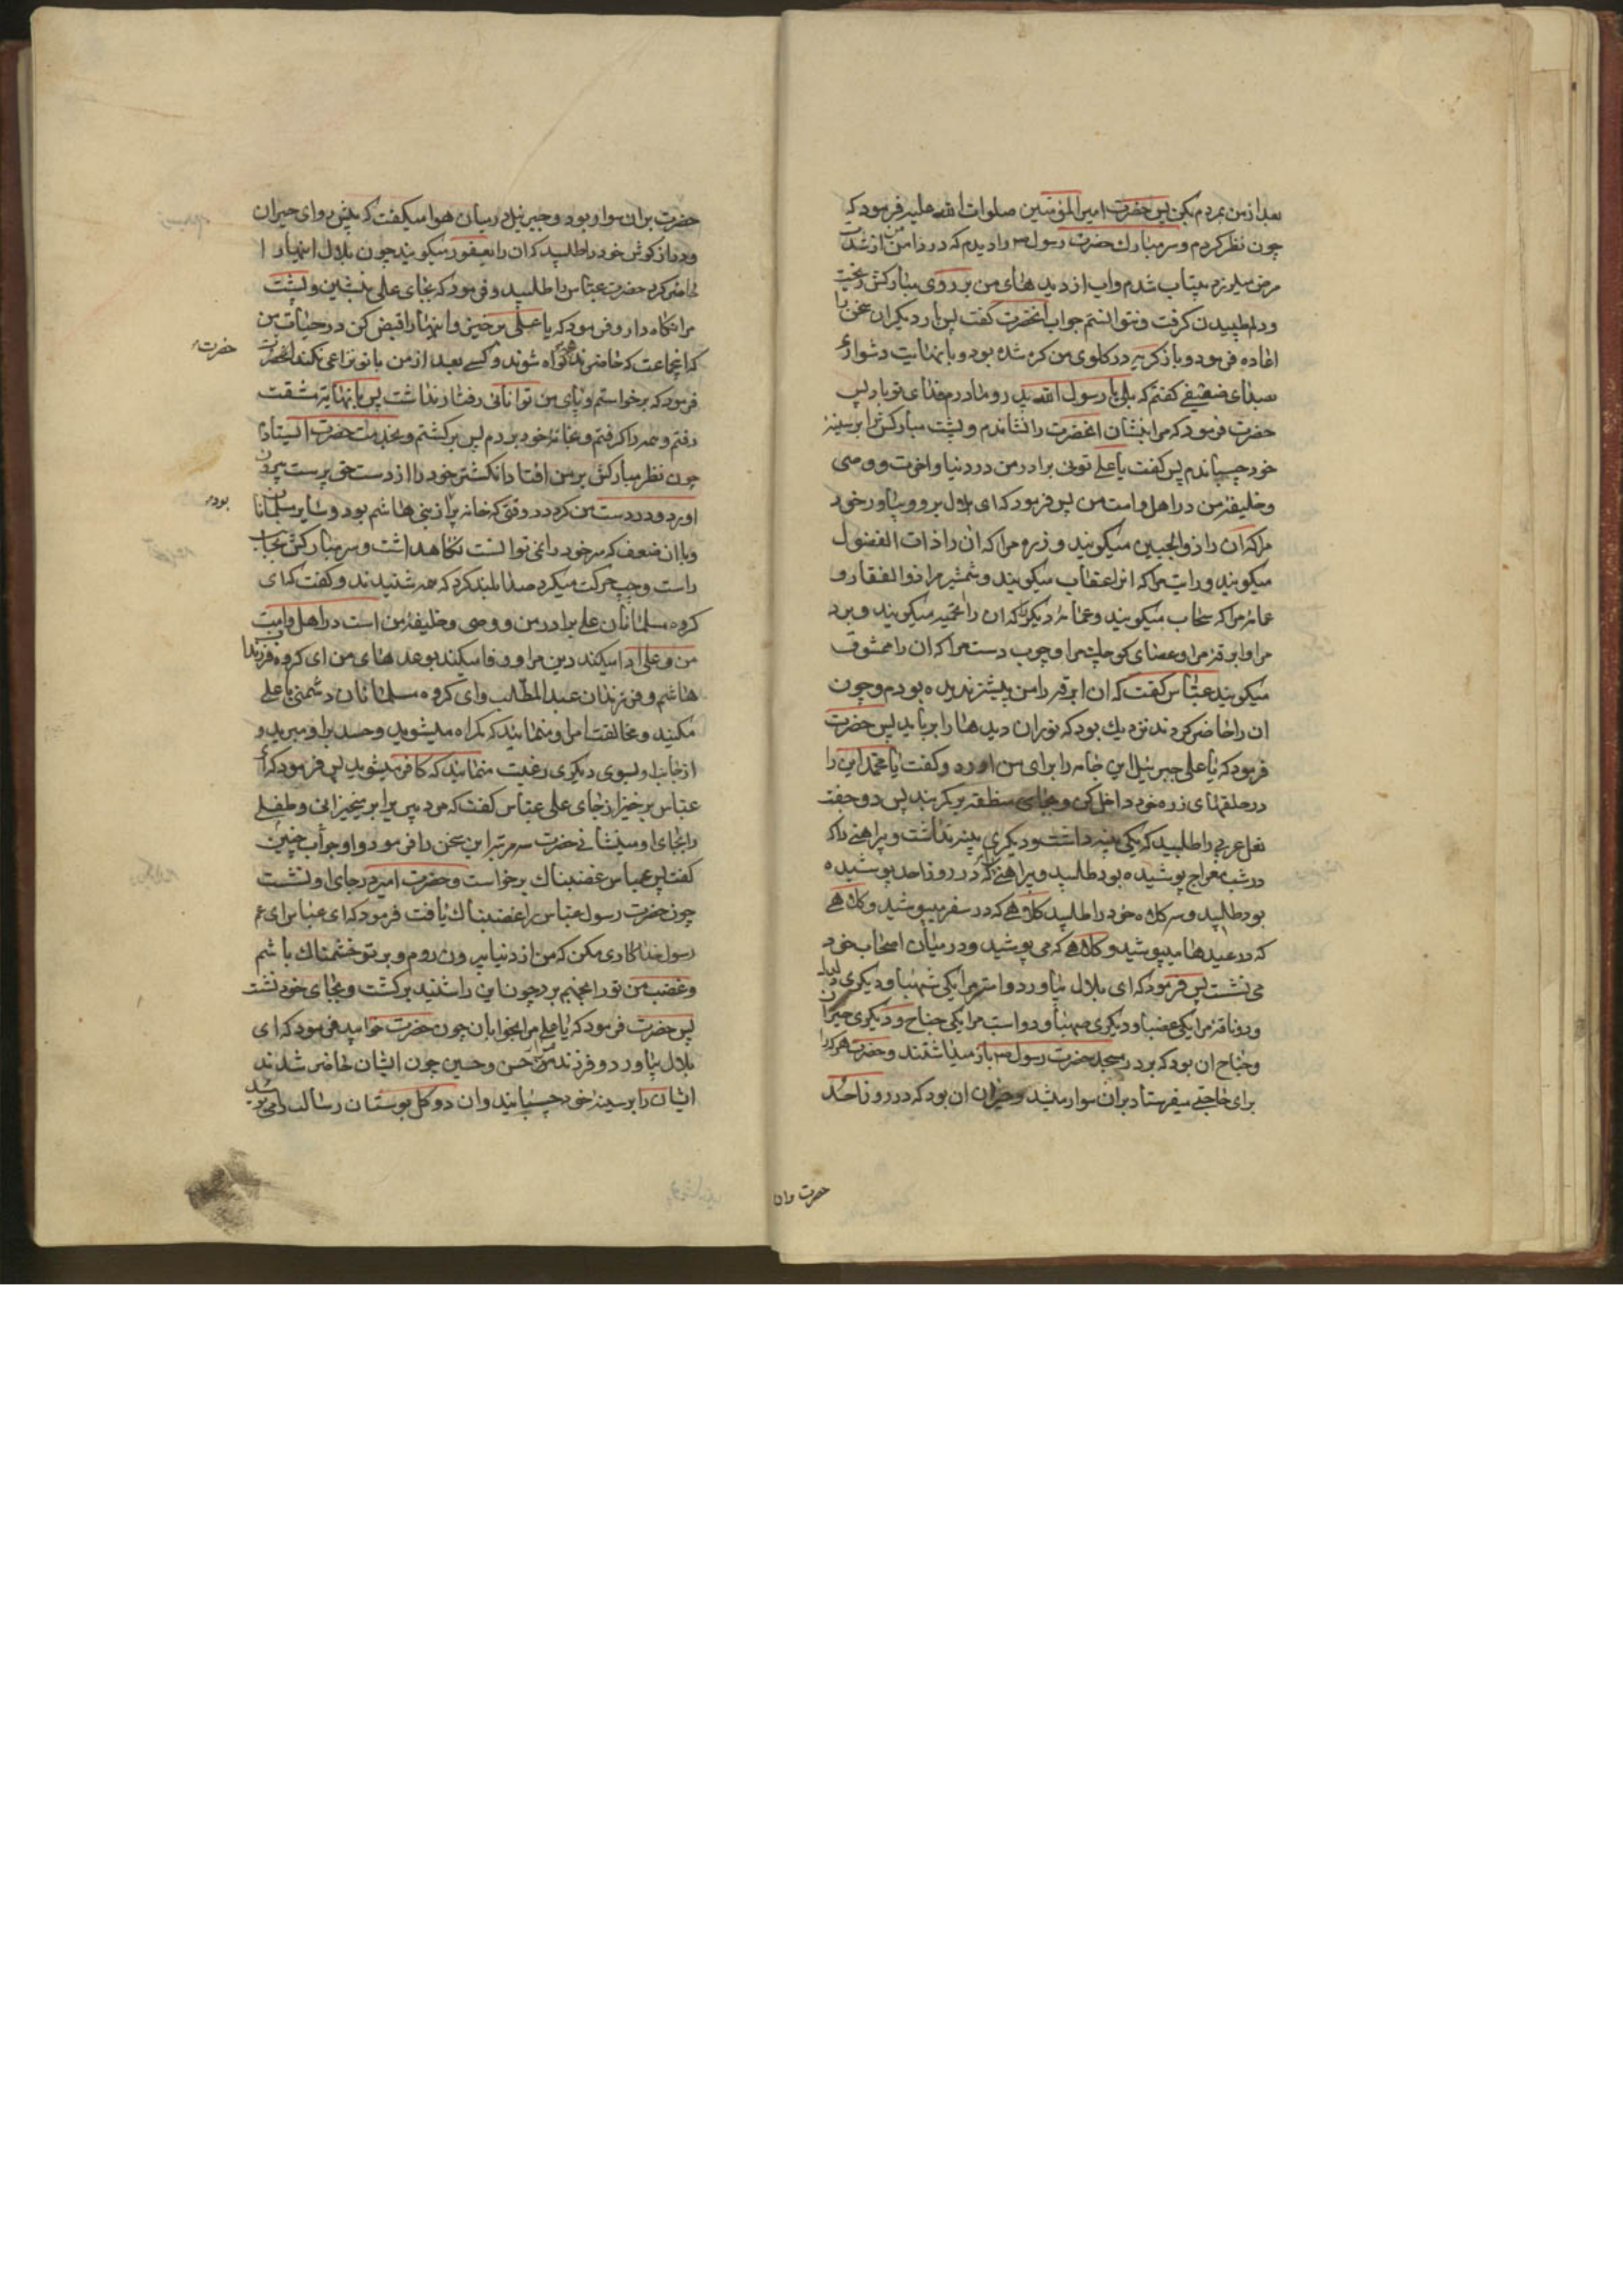 بعد از من بمردم بکن پس حضرت امیر المؤمنین صلوات الله علیه فرمود که
چون نظر کردم و سر مبارک حضرت رسول را دیدم که در دامن من از شدت
مرض میلرزد بیتاب شدم و آب از دیدهای من بر روی مبارکش ریخت
و دلم طپیدن گرفت و نتوانستم جواب آنحضرت گفت پس بار دیگر آن سخن را
اعاده فرمود و باز گریه در گلوی من گره شده بود و با نهایت دشواری
بصدای ضعیفی گفتم که بلی یا رسول الله پدر و مادرم فدای تو باد پس
حضرت فرمود که مرا بنشان آنحضرت را نشاندم و پشت مبارکش را بر سینه
خود چسپاندم پس گفت یا علی توئی برادر من در دنیا و آخرت و وصی
و خلیفه من در اهل و امت من پس فرمود که ای بلال برو و بیاور خود
مرا که آن را ذو الجبین میگویند و زره مرا که آن را ذات الفضول
میگویند و رایت مرا که آنرا عقاب میگویند و شمشیر مرا ذو الفقار و
عمامه مرا که سحاب میگویند و عمامه دیگر را که آن را میگویند و برد
مرا و ابرقه مرا و عصای کوچک مرا و چوب دست مرا که آن را ممشوق
میگویند عباس گفت که آن ابرقه را من پیشتر ندیده بودم و چون
آن را حاضر کردند نزدیک بود که نور آن دیدها را برباید پس حضرت
فرمود که یا علی جبرئیل این جامه را برای من آورد و گفت یا محمد این را
در حلقهای زره خود داخل کن و بجای منطقه بر کمر بند پس دو جفت
نعل عربی را طلبید که یکی پینه داشت و دیگری پینه نداشت و پیراهنی را که
در شب معراج پوشیده بود طلبید و پیراهنی که در روز احد پوشیده
بود طلبید و سه کلاه خود را طلبید کلاهی که در سفر میپوشید و کلاهی
که در عیدها میپوشید و کلاهی که می پوشید و در میان اصحاب خود
می نشست پس فرمود که ای بلال بیاور دو استر مرا یکی شهبا و دیگری دلدل
و دو ناقه مرا یکی عضبا و دیگری صهبا و دو اسب مرا یکی جناح و دیگری حیزان
و جناح آن بود که بر در مسجد حضرت رسول باز میداشتند و حضرت هر که را
برای حاجتی میفرستاد بر آن سوار میشد و حیزان آن بود که در روز احد
حضرت بر آن
حضرت بر آن سوار بود و جبرئیل در میان هوا میگفت که پیش رو ای حیزان
و دراز گوش خود را طلبید که آن را یعفور میگویند چون بلال اینها را
حاضر کرد حضرت عباس را طلبید و فرمود که بجای علی بنشین و پشت
مرا نگاه دار و فرمود که یا علی برخیز و اینها را قبض کن در حیات من
که این جماعت که حاضرند همه گواه شوند و کسی بعد از من با تو نزاعی نکند آنحضرت
حضرت
فرمود که برخواستم و پای من توانائی رفتار نداشت پس با نهایت مشقت
رفتم و همه را گرفتم و بخانه خود بردم پس برگشتم و بخدمت حضرت ایستادم
چون نظر مبارکش بر من افتاد انگشتر خود را از دست حق پرست بیرون
آورد و در دست من کرد در وقتی که خانه پر از بنی هاشم بود و سایر مسلمانان
بود
و با آن ضعف که سر خود را نمی توانست نگاه داشت و سر مبارکش بجانب
راست و چپ حرکت میکرد صدا بلند کرد که همه شنیدند و گفت که ای
گروه مسلمانان علی برادر من و وصی و خلیفه من است در اهل و امت
من و علی ادا میکند دین مرا و وفا میکند بوعدهای من ای گروه فرزندان
هاشم و فرزندان عبد المطلب و ای گروه مسلمانان دشمنی با علی
مکنید و مخالفت امر او منمائید که گمراه میشوید و حسد بر او مبرید و
از جانب او بسوی دیگری رغبت منمائید که کافر میشوید پس فرمود که ای
عباس برخیز از جای علی عباس گفت که مرد پیر را بر میخیزانی و طفلی
را بجای او مینشانی حضرت سه مرتبه این سخن را فرمود و او جواب چنین
گفت پس عباس غضبناک برخواست و حضرت امیر در جای او نشست
چون حضرت رسول عباس را غضبناک یافت فرمود که ای عباس ای عم
رسول خدا کاری مکن که من از دنیا بیرون روم و بر تو خشمناک باشم
و غضب من تو را بجهنم برد چون این را شنید برگشت و بجای خود نشست
پس حضرت فرمود که یا علی مرا بخوابان چون حضرت خوابید فرمود که ای
بلال بیاور دو فرزند من حسن و حسین چون ایشان حاضر شدند
ایشان را بر سینه خود چسپانید و آن دو گل بوستان رسالت را می بوئید